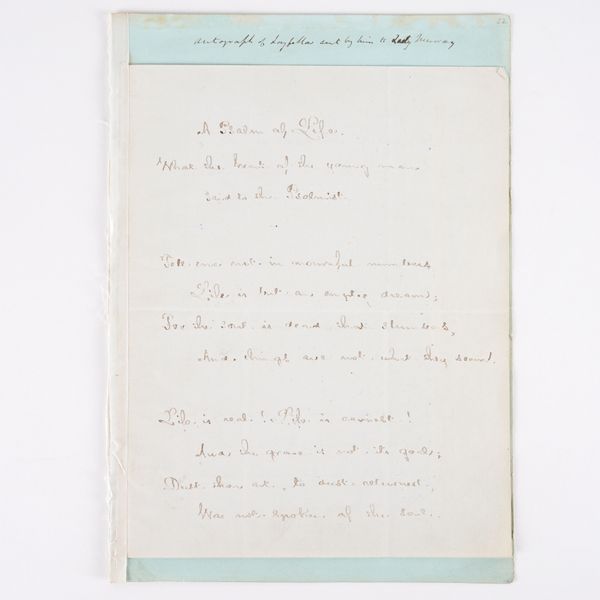 22
Autograph of Longfellow sent by him to Lady Murray
A Psalm of Life.
What the heart of the young man
said to the Psalmist.
Tell me not in mournful numbers
Life is but an empty dream;
For the soul is dead that slumbers,
And things are not what they seem!
Life is real! Life is earnest!
And the grave is not its goal;
Dust thou art, to dust returnest,
Was not spoken of the soul.